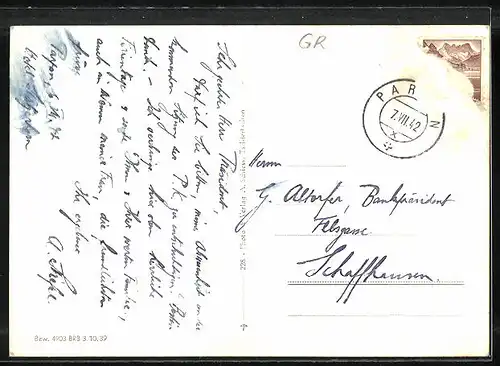 GR
PAR N
7.VII.42
Sehr geehrter Herr Präsident,
Darf ich Sie bitten, meine Abwesenheit an der
kommenden Sitzung der P.K. zu entschuldigen. Besten
Dank. – Ich verbringe hier oben herrliche
Ferientage & sende Ihnen & Ihrer werten Familie,
auch im Namen meiner Frau, die freundlichsten
Grüsse
Ihr ergebener
Parpan, 6. VII. 42
Herrn
G. Altorfer, Bankpräsident
Felsgasse
Schaffhausen.
228
Bew. 4903 BRB 3.10.39